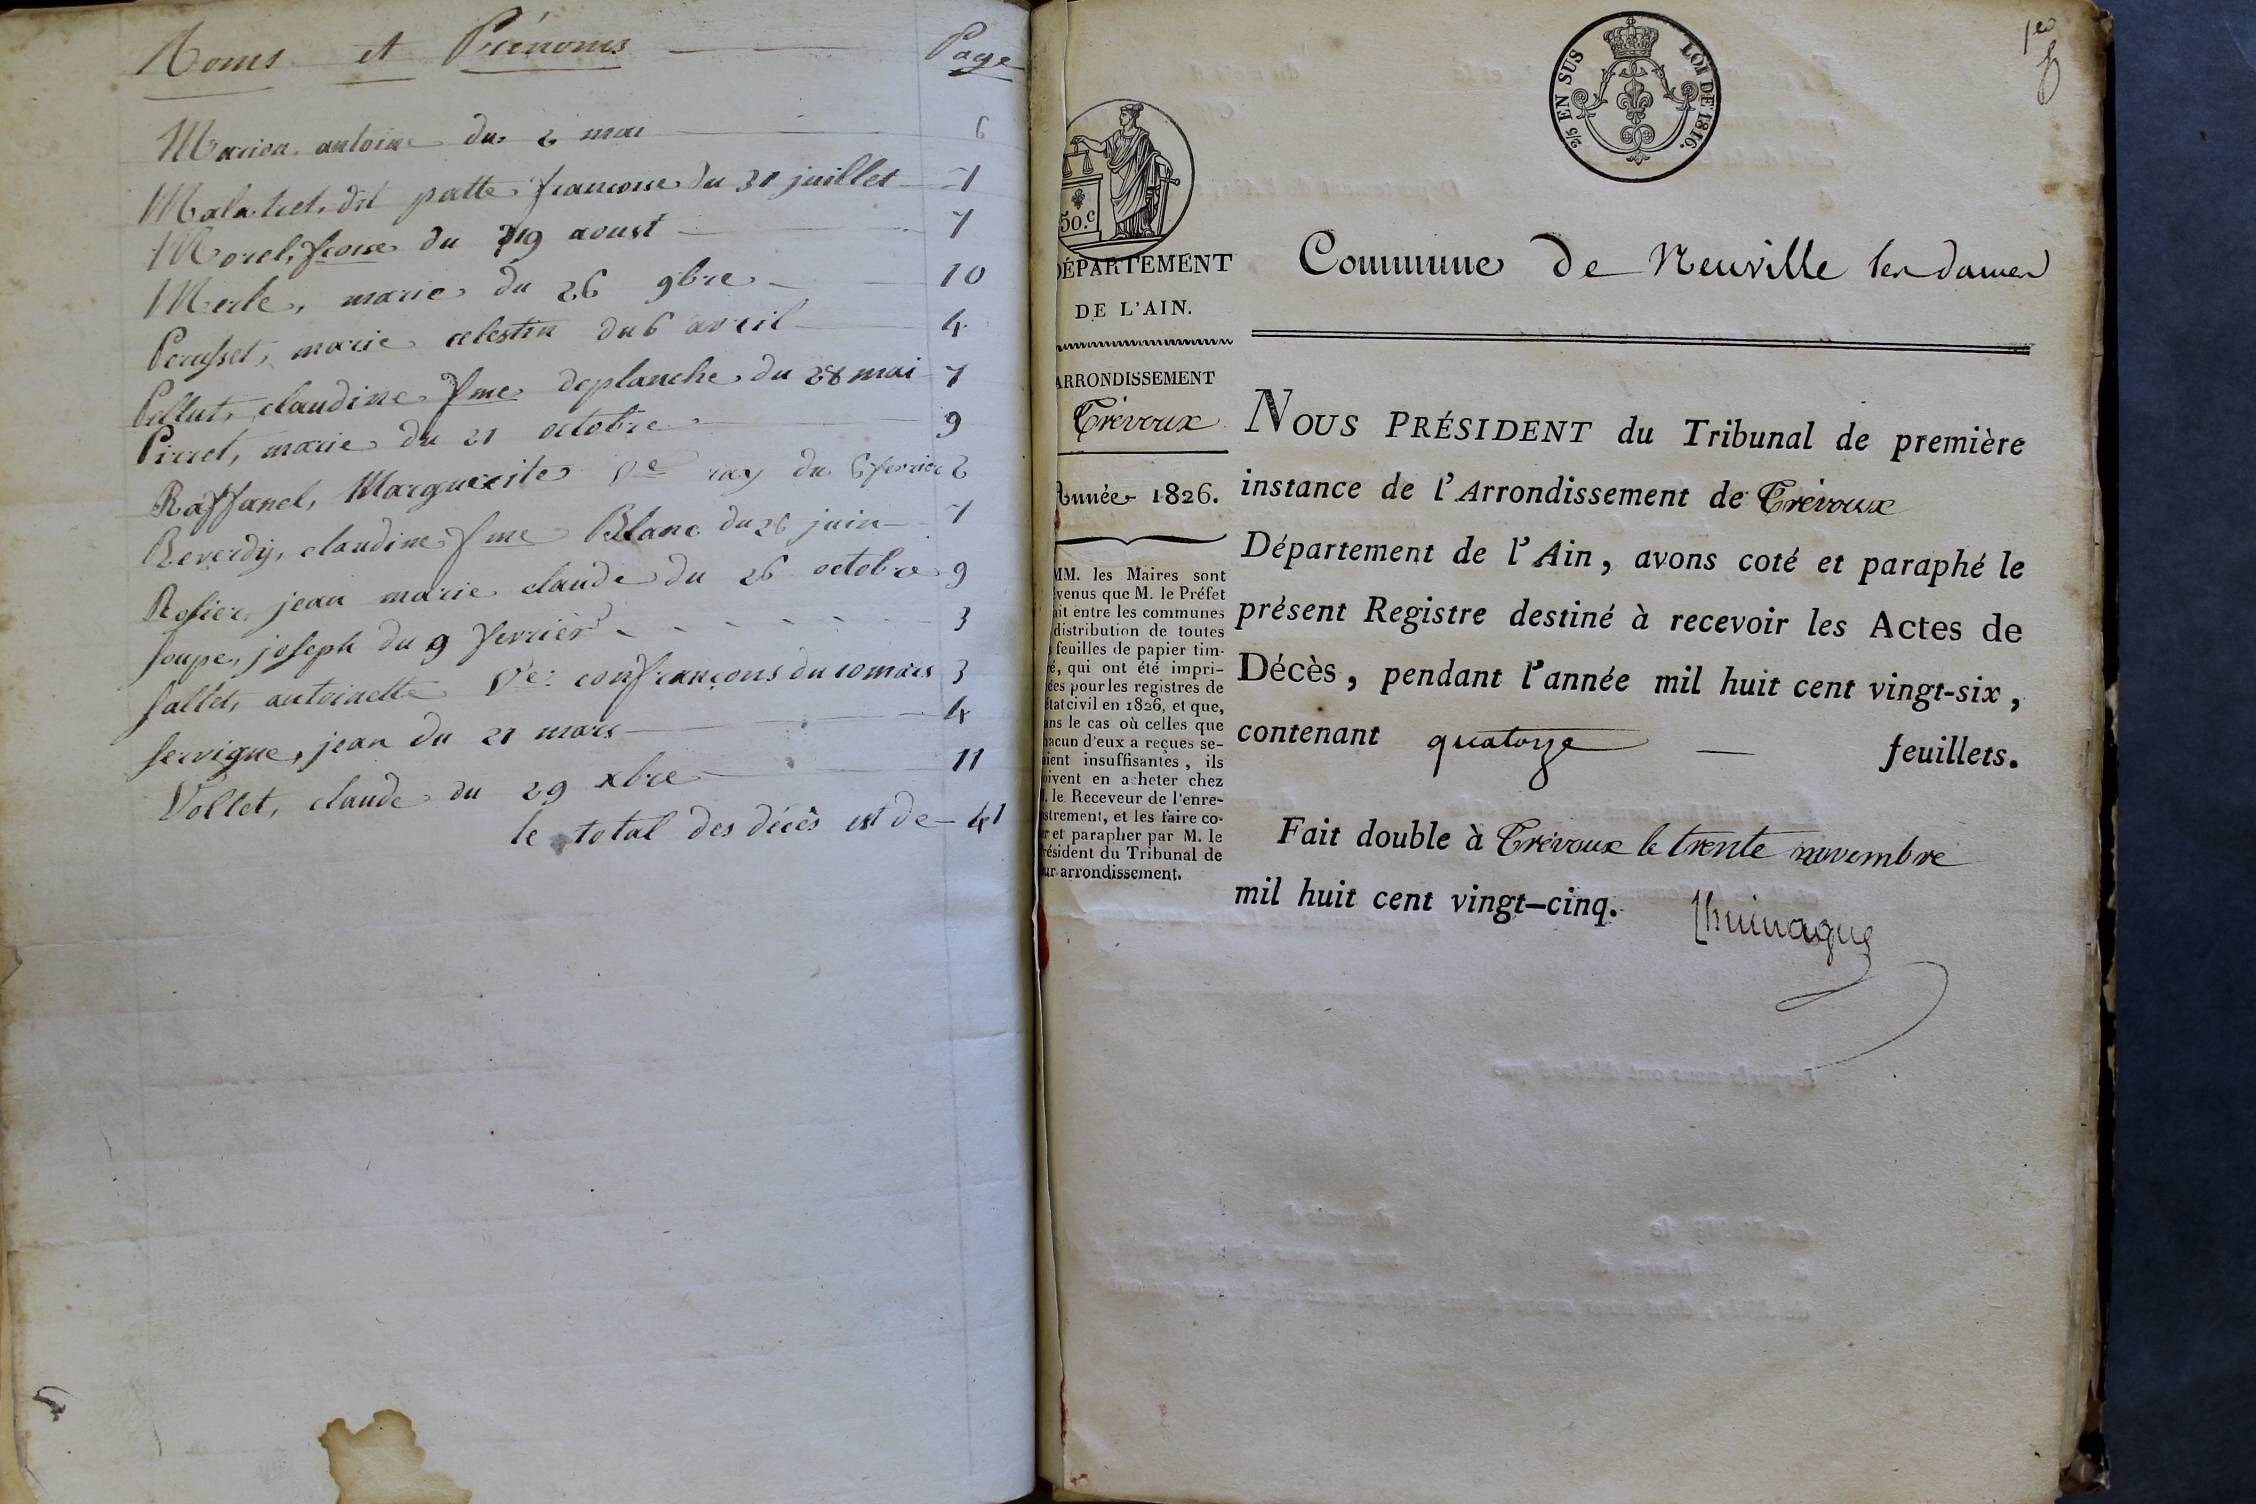 Noms et Prénoms Page
Marion antoine du 2 mai 6
dit patte francoise du 31 juillet 7
Morel, fcoise du 19 aoust 7
Merle, marie du 26 9bre 10
Perusset, marie celestin du 6 avril 4
Pellut, claudine fme deplanche du 28 mai 7
Pirret, marie du 21 octobre 9
Raffanel, Marguerite Ve ray du 6 fevrier 2
Reverdy, claudine fme Blanc du 26 juin 7
Rosier, jean marie claude du 26 octobre 9
Soupe, joseph du 9 fevrier 3
Sallet, antoinette Ve confrançons du 10 mars 3
Servigne, jean du 21 mars 4
Vollet, claude du 29 xbre 11
le total des décès est de 41
1er
2/5 EN SUS LOI DE 1816.
50.c
DÉPARTEMENT
DE L'AIN.
ARRONDISSEMENT
Trévoux
Année 1826.
MM. les Maires sont
évenus que M. le Préfet
ait entre les communes
distribution de toutes
feuilles de papier tim-
é, qui ont été impri-
ées pour les registres de
état civil en 1826, et que,
ans le cas où celles que
hacun d'eux a reçues se-
oient insuffisantes, ils
oivent en acheter chez
. le Receveur de l'enre-
istrement, et les faire co-
er et parapher par M. le
résident du Tribunal de
ur arrondissement.
Commune de Neuville les dames
NOUS PRÉSIDENT du Tribunal de première
instance de l'Arrondissement de Trévoux
Département de l'Ain, avons coté et paraphé le
présent Registre destiné à recevoir les Actes de
Décès, pendant l'année mil huit cent vingt-six,
contenant quatorze feuillets.
Fait double à Trévoux le trente novembre
mil huit cent vingt-cinq.